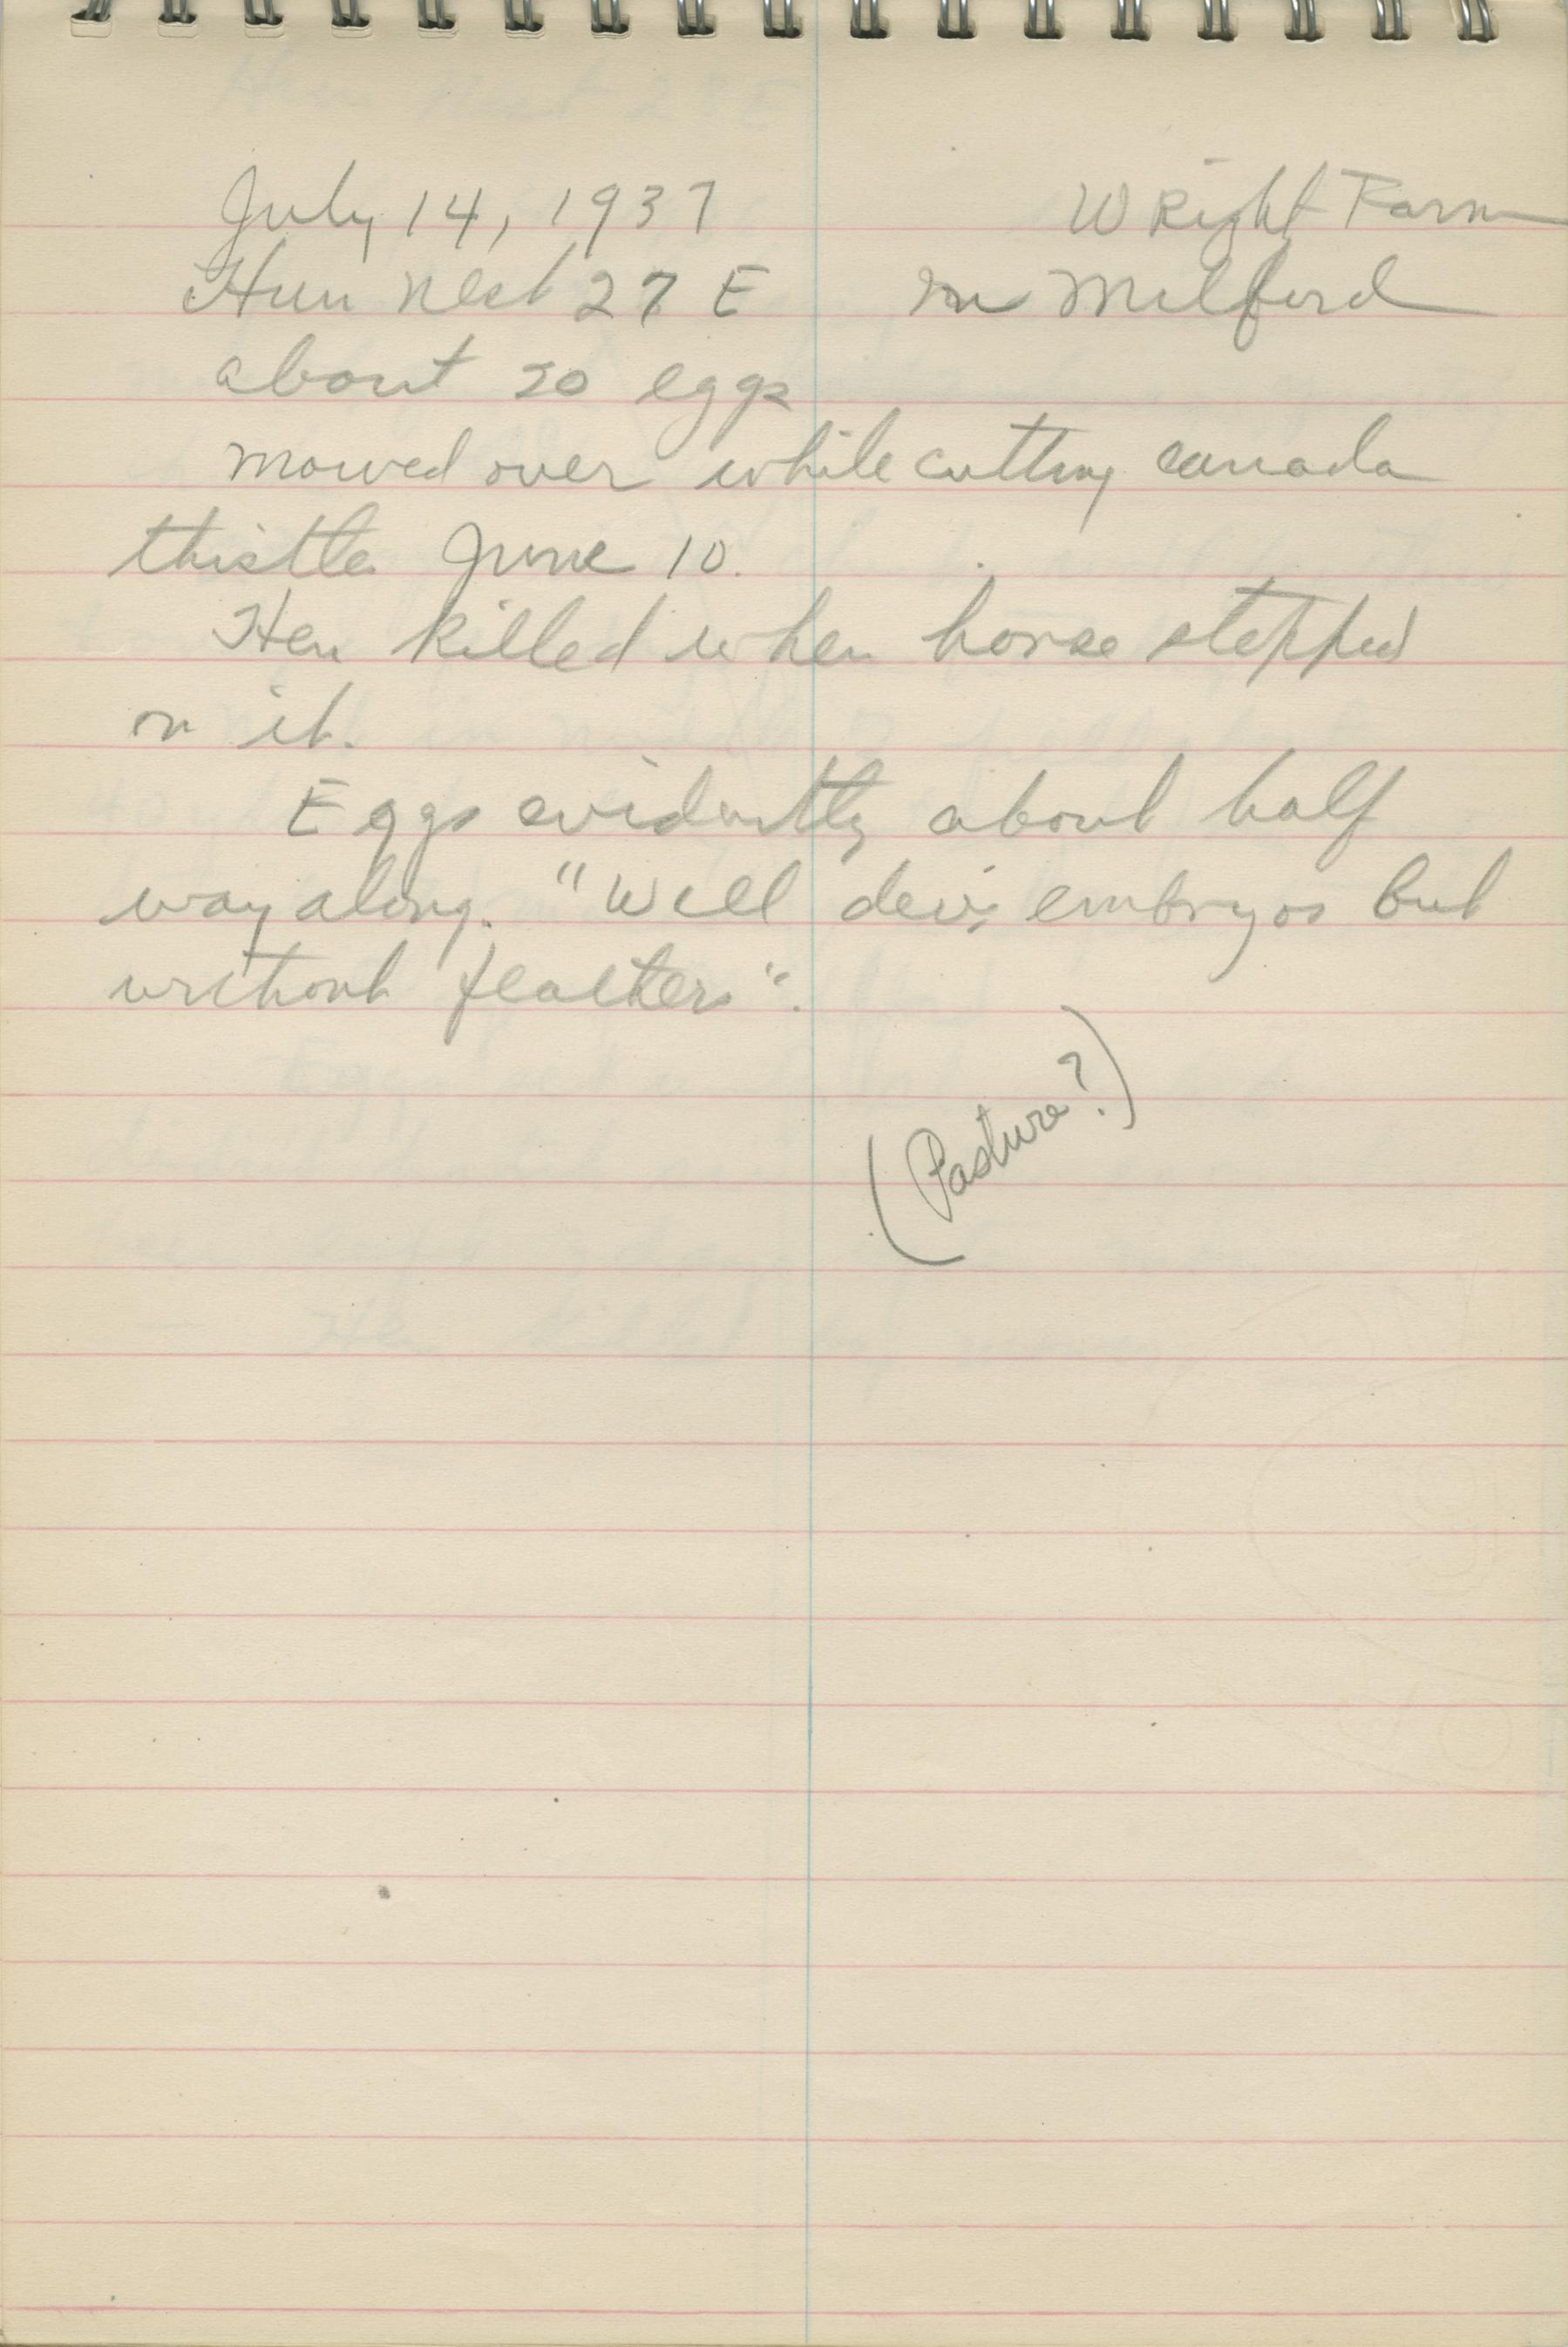 July 14, 1937 Wright Farm
Hun nest 27 E in Milford
about 20 eggs
mowed over while cutting canada
thistle June 10.
Hen killed when horse stepped
on it.
Eggs evidently about half
way along. "Well dev. embryos but
without feathers".
(Pasture?)